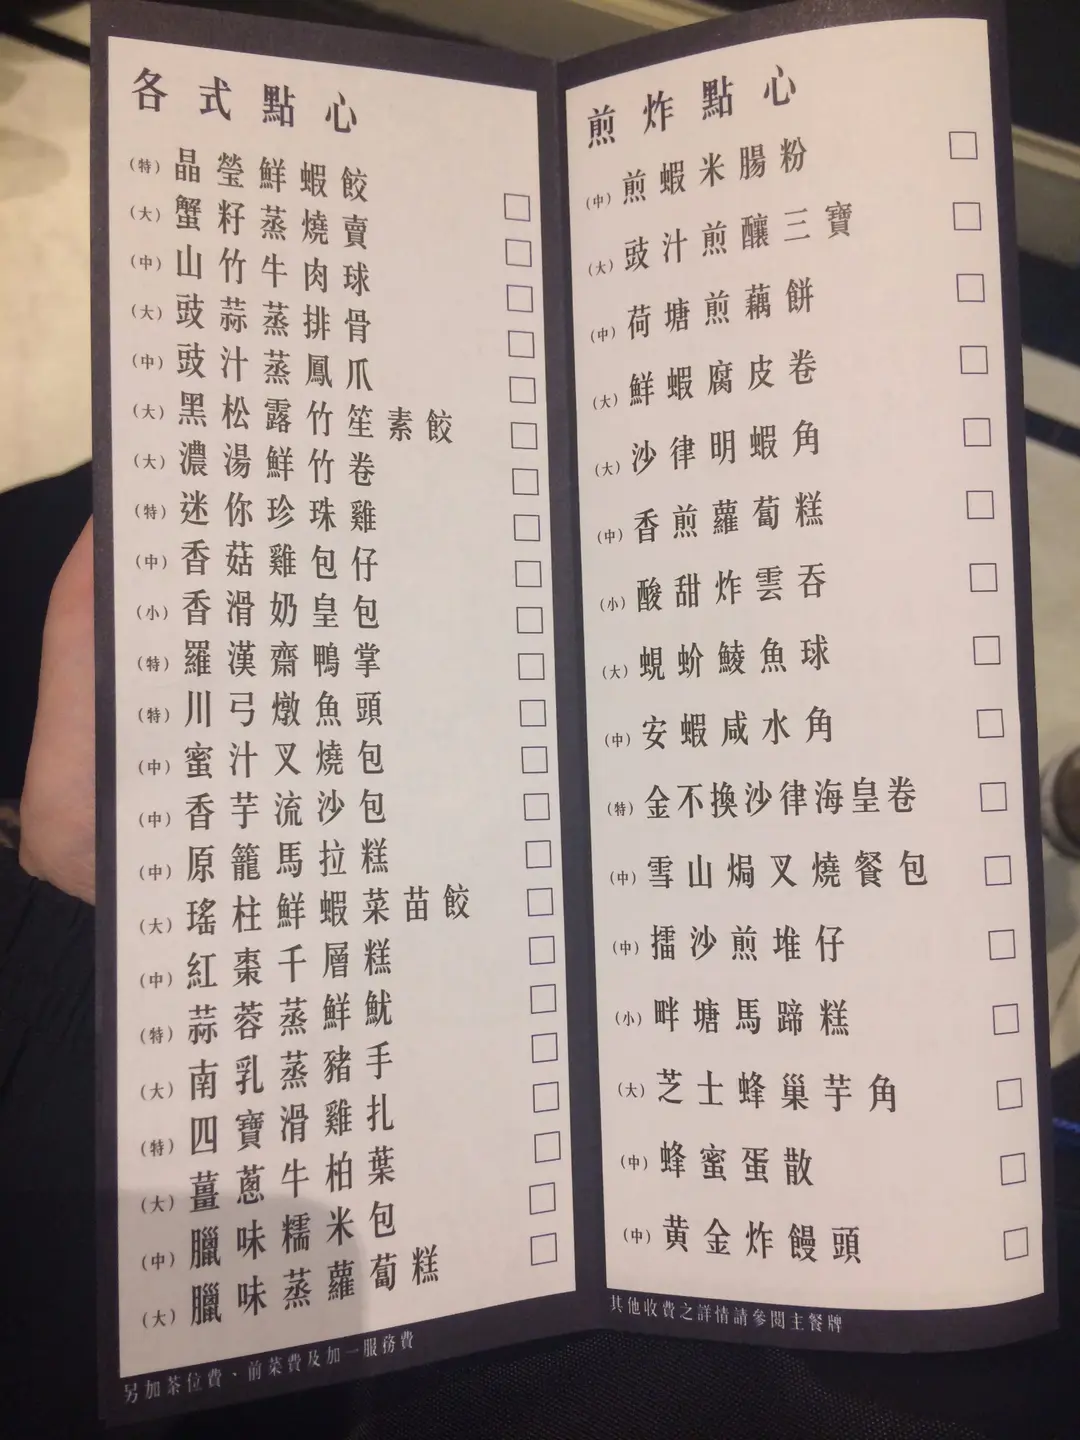 各式點心
(特) 晶瑩鮮蝦餃
(大) 蟹籽蒸燒賣
(中) 山竹牛肉球
(大) 豉蒜蒸排骨
(中) 豉汁蒸鳳爪
(大) 黑松露竹笙素餃
(大) 濃湯鮮竹卷
(特) 迷你珍珠雞
(中) 香菇雞包仔
(小) 香滑奶皇包
(特) 羅漢齋鴨掌
(特) 川弓燉魚頭
(中) 蜜汁叉燒包
(中) 香芋流沙包
(中) 原籠馬拉糕
(大) 瑤柱鮮蝦菜苗餃
(中) 紅棗千層糕
(特) 蒜蓉蒸鮮魷
(大) 南乳蒸豬手
(特) 四寶滑雞扎
(大) 薑蔥牛柏葉
(中) 臘味糯米包
(大) 臘味蒸蘿蔔糕
另加茶位費、前菜費及加一服務費
煎炸點心
(中) 煎蝦米腸粉
(大) 豉汁煎釀三寶
(中) 荷塘煎藕餅
(大) 鮮蝦腐皮卷
(大) 沙律明蝦角
(中) 香煎蘿蔔糕
(小) 酸甜炸雲吞
(大) 蜆蚧鯪魚球
(中) 安蝦咸水角
(特) 金不換沙律海皇卷
(中) 雪山焗叉燒餐包
(中) 擂沙煎堆仔
(小) 畔塘馬蹄糕
(大) 芝士蜂巢芋角
(中) 蜂蜜蛋散
(中) 黄金炸饅頭
其他收費之詳情請參閱主餐牌